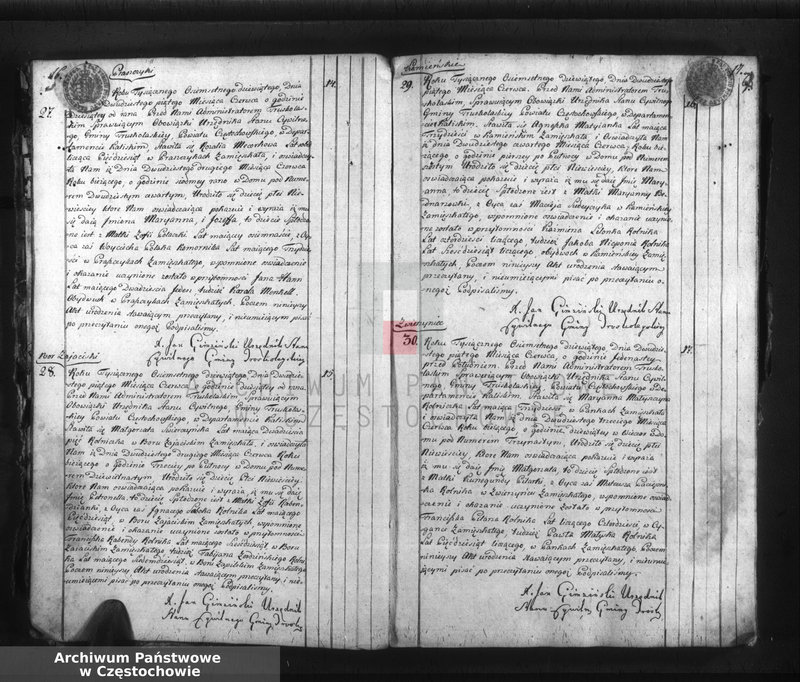 Praszczyki
27.
14.
Roku Tysiącznego Osiemsetnego dziewiątego, dnia
Dwudziestego piątego Miesiąca Czerwca o godzinie
dziewiątey z rana. Przed Nami Administratorem Truskola-
skim Sprawującym Obowiązki Urzędnika Stanu Cywilne-
go, Gminy Truskolaskiey, Powiatu Częstochowskiego, w Depar-
tamencie Kaliskim, Stawiła się Rozalia
licząca Pięćdziesiąt w Praszczykach Zamieszkała, i oświadczy-
ła Nam iż Dnia Dwudziestego drugiego Miesiąca Czerwca
Roku bieżącego, o godzinie siódmey rano w Domu pod Nume-
rem Dwudziestym czwartym, Urodziło się dziecie płci Nie-
wieściey które Nam oświadczaiąca pokazuie i wyraża iż mu
się daią Jmiona Maryanna, i Jozefa to dziecie Spłodzo-
ne iest z Matki Zofii
ca zaś Woyciecha Polaka Komornika Lat maiącego Trzydzie-
ści w Praszczykach Zamieszkałego, wspomnione oświadczenie
i okazanie uczynione zostało w przytomności Jana
Lat maiącego Dwadzieścia ieden tudzież Karola
Obydwuch w Praszczykach Zamieszkałych, Poczem niniejszy
Akt urodzenia stawaiącym przeczytany, i nieumieiącymi pisać
po przeczytaniu onegoż Podpisaliśmy.
X. Jan Gineiński Urzędnik Stanu
Cywilnego Gminy Troskolaskiey
Boor Zajaciski
28.
15.
Roku Tysiącznego Osiemsetnego dziewiątego, Dnia Dwudzie-
stego piątego Miesiąca Czerwca o godzinie dziewiątey z rana.
Przed Nami Administratorem Truskolaskim, Sprawującym
Obowiązki Urzędnika Stanu Cywilnego Gminy Truskola-
skiey Powiatu Częstochowskiego w Departamencie Kaliskim
Stawiła się Małgorzata Lat maiąca Dwadzieścia
pięć Rolniczka w Boru Zajaciskim Zamieszkała, i oświadczyła
Nam iż Dnia Dwudziestego drugiego Miesiąca Czerwca Roku
bieżącego o godzinie Trzeciey po Północy w Domu pod Nume-
rem Dziewiętnastym Urodziło się dziecie Płci Niewieściey
które Nam oświadczaiąca pokazuie i wyraża iż mu się daie
Jmię Petronella to dziecie Spłodzone iest z Matki Zofii
z Oyca zaś Jgnacego Rolnika Lat maiącego
Pięćdziesiąt, w Boru Zajaciskim Zamieszkałych, wspomnione
oświadczenie i okazanie uczynione zostało w przytomności
Franciszka Rolnika Lat maiącego Sześćdziesiąt w Boru
Zajaciskim Zamieszkałego tudzież Fabijana Rolni-
ka Lat maiącego Siedemdziesiąt, w Boru Zajaciskim Zamieszkałego
Poczem niniejszy Akt urodzenia stawaiącym przeczytany, i nie-
umieiącymi pisać po przeczytaniu onegoż Podpisaliśmy.
X. Jan Gineiński Urzędnik
Stanu Cywilnego Gminy Trosk
Kamieńskie
29.
16
Roku Tysiącznego Osiemsetnego dziewiątego, Dnia Dwudziestego
piątego Miesiąca Czerwca, Przed Nami Administratorem Trus-
kolaskim, Sprawującym Obowiązki Urzędnika Stanu Cywilnego
Gminy Truskolaskiey Powiatu Częstochowskiego w Departamen-
cie Kaliskim, Stawiła się Agnyszka Matyianka Lat maiąca
Trzydzieści w Kamieńskim Zamieszkała i Oświadczyła Nam
iż dnia Dwudziestego czwartego Miesiąca Czerwca, Roku bie-
żącego, o godzinie pierwszey po Północy w Domu pod Numerem
Urodziło się dziecie płci Niewieściey, które Nam
oświadczaiąca pokazuie i wyraża iż mu się daie Jmię Mary-
anna to dziecie Spłodzone iest z Matki Maryanny Bo-
dnarowski, z Oyca zaś Macieja w Kamieńskim
Zamieszkałego, wspomnione oświadczenie i okazanie uczynio-
ne zostało w przytomności Kazimirza Rolnika
Lat czterdzieści liczącego, tudzież Jakoba Rolnika
Lat Sześćdziesiąt liczącego obydwuch w Kamieńskim Zamie-
szkałych, Poczem niniejszy Akt urodzenia stawaiącym
przeczytany, i nieumieiącymi pisać po przeczytaniu o-
negoż Podpisaliśmy.
X. Jan Gineiński Urzędnik Stanu
Cywilnego Gminy Troskolaskiey
Zwierzyniec
30.
17.
Roku Tysiącznego Osiemsetnego dziewiątego, Dnia Dwudzie-
stego piątego Miesiąca Czerwca, o godzinie Jedenastey
przed Południem, Przed Nami Administratorem Trusko-
laskim Sprawującym Obowiązki Urzędnika Stanu Cywil-
nego, Gminy Truskolaskiey, Powiatu Częstochowskiego w De-
partamencie Kaliskim, Stawiła się Maryanna
Rolniczka Lat maiąca Trzydzieści w Pankach Zamieszkała
i oświadczyła Nam iż dnia Dwudziestego Trzeciego Miesiąca
Czerwca Roku bieżącego, o godzinie dziewiątey w Wieczor w Do-
mu pod Numerem Trzynastym, Urodziło się dziecie płci
Niewieściey, które Nam oświadczaiąca pokazuie i wyraża
iż mu się daie Jmię Małgorzata to dziecie Spłodzone iest
z Matki Kunegundy z Oyca zaś Mateusza
Rolnika w Zwierzyńcu Zamieszkałego, wspomnione oświad-
czenie i okazanie uczynione zostało w przytomności
Franciszka Rolnika Lat liczącego w Cy-
gance Zamieszkałego, tudzież Pawła Rolnika
Lat Pięćdziesiąt liczącego, w Pankach Zamieszkałego, Poczem
niniejszy Akt urodzenia stawaiącym przeczytany, i nieumie-
iącymi pisać po przeczytaniu onegoż Podpisaliśmy.
X. Jan Gineiński Urzędnik
Stanu Cywilnego Gminy Trosk
Archiwum Państwowe
w Częstochowie